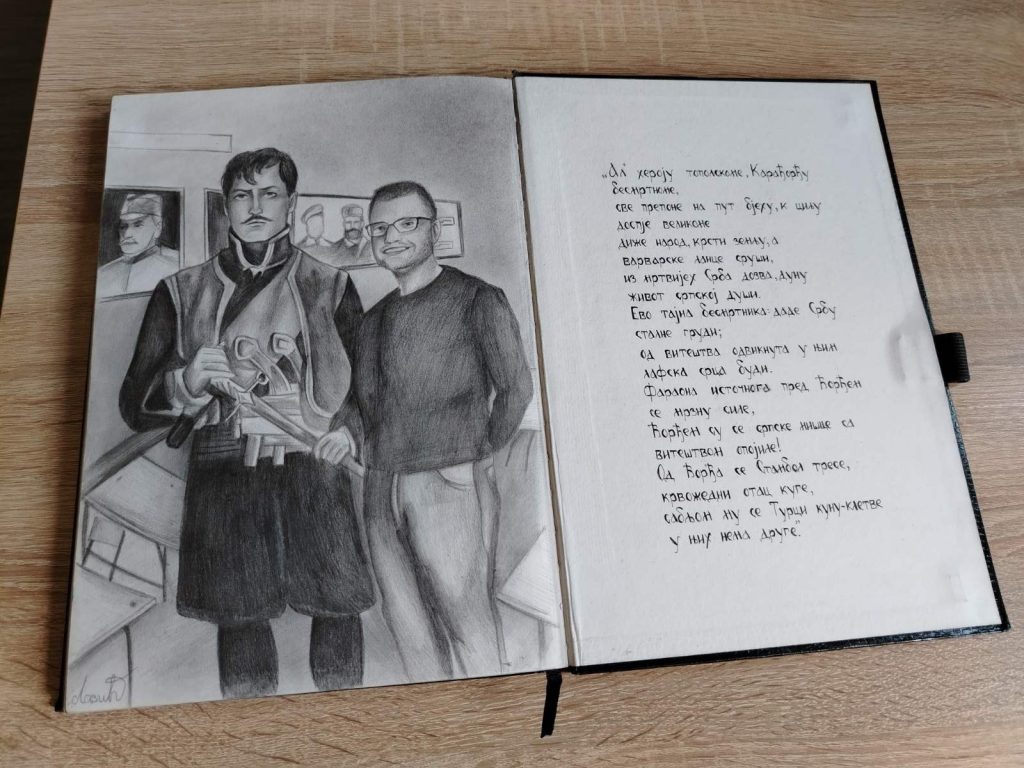 „Ал' хероју тополскоме, Карађорђу
бесмртноме,
све препоне на пут бјеху, к циљу
доспје великоме
диже народ, крсти земљу, а
варварске ланце сруши,
из мртвијех Срба дозва, дуну
живот српској души.
Ево тајна бесмртника: даде Србу
сталне груди;
од витештва одвикнута у њим
лафска срца буди.
Фараона источнога пред Ђорђем
се мрзну силе,
Ђорђем су се српске мишце са
витештвом опојиле!
Од Ђорђа се Стамбол тресе,
крвожедни отац куге,
сабљом му се Турци куну-клетве
у њих нема друге."